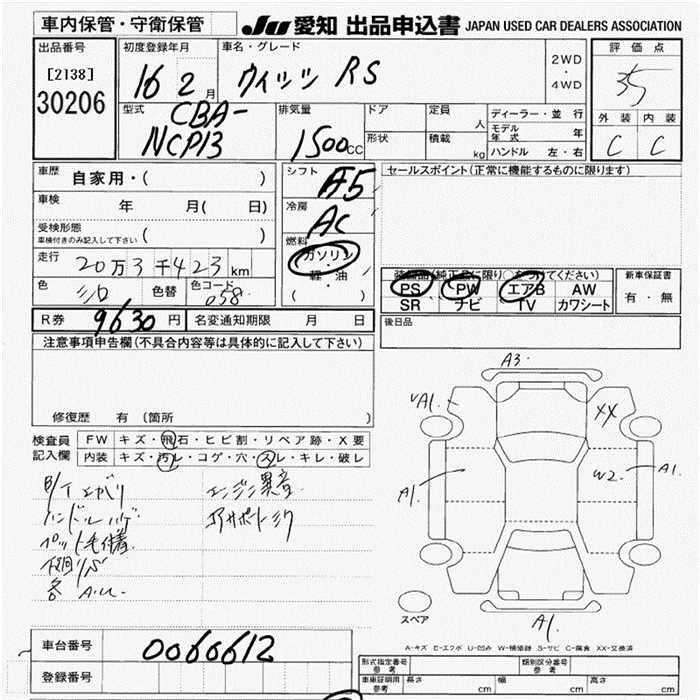 車内保管・守衛保管
JU 愛知 出品申込書 JAPAN USED CAR DEALERS ASSOCIATION
出品番号
[2138]
30206
初度登録年月
16 2月
車名・グレード
ウィッツ RS
2WD
・
4WD
評価点
35
外装 内装
C C
型式
CBA-
NCP13
排気量
1500cc
ドア
形状
定員
人
積載
kg
ディーラー・並行
モデル年式 年
ハンドル 左・右
車歴
自家用・( )
車検
年 月( 日)
受検形態
車検付きのみ記入して下さい ( )
走行
20万3千423km
色
シロ
色替
色コード
058
シフト
F5
冷房
AC
燃料
ガソリン
・
軽・油
( )
セールスポイント(正常に機能するものに限ります)
装備品(純正品に限り○をつけてください)
PS PW エアB AW
SR ナビ TV カワシート
新車保証書
有・無
R券 9630円
名変通知期限 月 日
後日品
注意事項申告欄(不具合内容等は具体的に記入して下さい)
修復歴 有 (箇所 )
検査員
記入欄
FW キズ・飛石・ヒビ割・リペア跡・X要
内装 キズ・汚レ・コゲ・穴・スレ・キレ・破レ
エンジン異音
ハンドルハゲ
ペット毛付着
下廻りサビ
各 A.U.
A3.
A1.
XX
A1.
W2.
A1.
A1.
スペア
A-キズ E-エクボ U-凹み W-補修跡 S-サビ C-腐食 XX-交換済
車台番号
0060612
登録番号
形式指定番号
参考
類別区分番号
参考
車庫証明用
参考
長さ cm
幅 cm
高さ cm